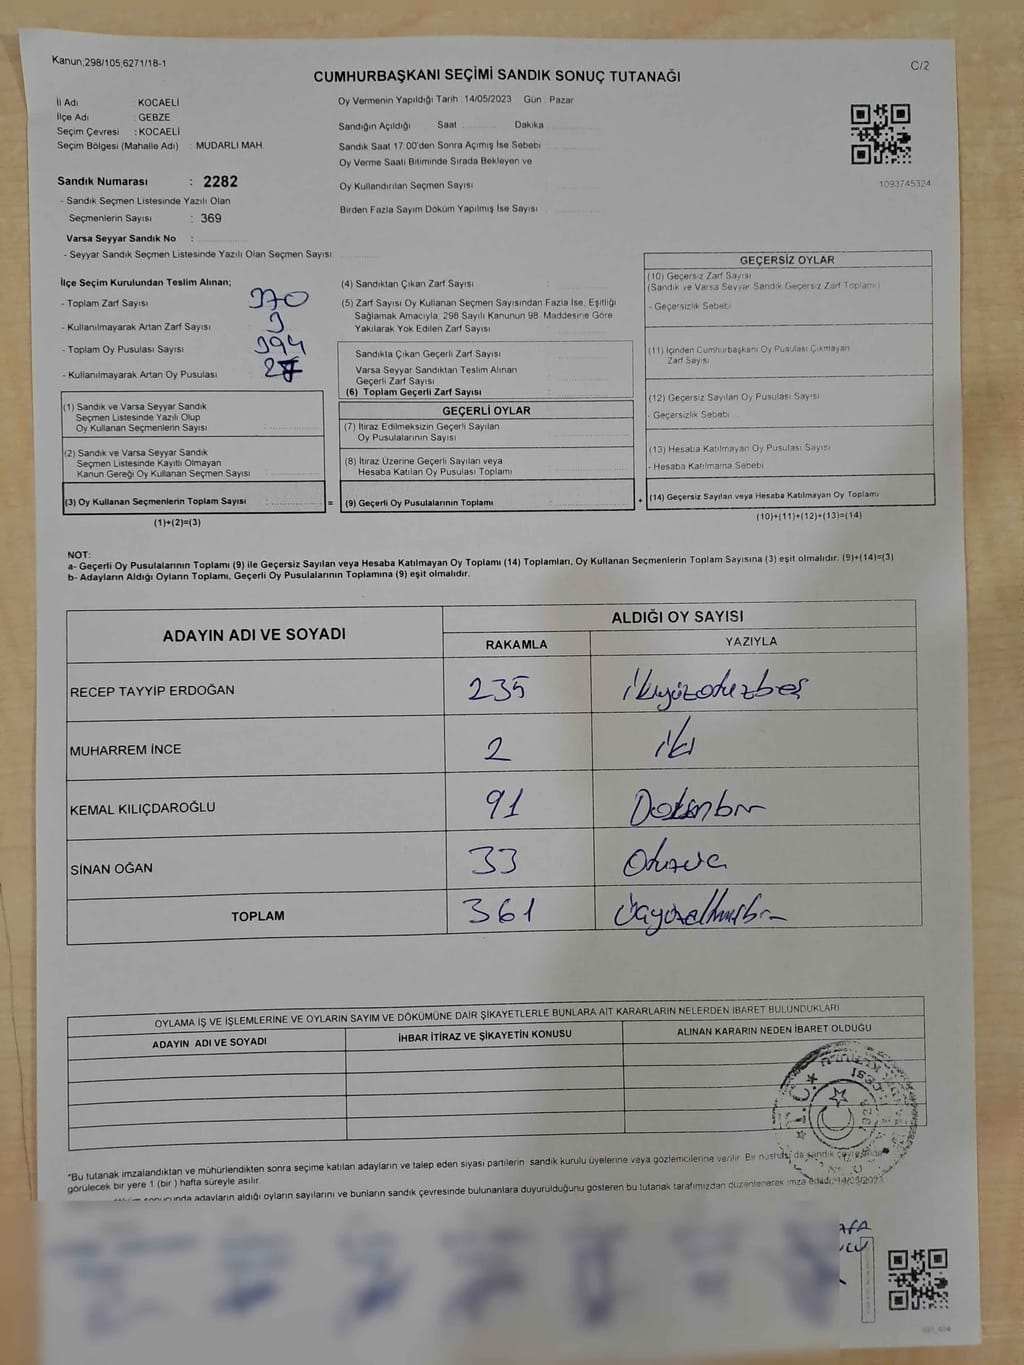 Kanun;298/105;6271/18-1
C/2
CUMHURBAŞKANI SEÇİMİ SANDIK SONUÇ TUTANAĞI
İl Adı : KOCAELİ
İlçe Adı : GEBZE
Seçim Çevresi : KOCAELİ
Seçim Bölgesi (Mahalle Adı) : MUDARLI MAH.
Sandık Numarası : 2282
- Sandık Seçmen Listesinde Yazılı Olan
Seçmenlerin Sayısı : 369
Varsa Seyyar Sandık No :
- Seyyar Sandık Seçmen Listesinde Yazılı Olan Seçmen Sayısı
Oy Vermenin Yapıldığı Tarih : 14/05/2023 Gün : Pazar
Sandığın Açıldığı Saat Dakika
Sandık Saat 17:00'den Sonra Açımış İse Sebebi
Oy Verme Saati Bitiminde Sırada Bekleyen ve
Oy Kullandırılan Seçmen Sayısı
Birden Fazla Sayım Döküm Yapılmış İse Sayısı
1093745324
İlçe Seçim Kurulundan Teslim Alınan;
- Toplam Zarf Sayısı 370
- Kullanılmayarak Artan Zarf Sayısı 9
- Toplam Oy Pusulası Sayısı 394
- Kullanılmayarak Artan Oy Pusulası
(1) Sandık ve Varsa Seyyar Sandık
Seçmen Listesinde Yazılı Olup
Oy Kullanan Seçmenlerin Sayısı
(2) Sandık ve Varsa Seyyar Sandık
Seçmen Listesinde Kayıtlı Olmayan
Kanun Gereği Oy Kullanan Seçmen Sayısı
(3) Oy Kullanan Seçmenlerin Toplam Sayısı : =
(1)+(2)=(3)
(4) Sandıktan Çıkan Zarf Sayısı :
(5) Zarf Sayısı Oy Kullanan Seçmen Sayısından Fazla İse, Eşitliği
Sağlamak Amacıyla, 298 Sayılı Kanunun 98. Maddesine Göre
Yakılarak Yok Edilen Zarf Sayısı
Sandıkta Çıkan Geçerli Zarf Sayısı
Varsa Seyyar Sandıktan Teslim Alınan
Geçerli Zarf Sayısı
(6) Toplam Geçerli Zarf Sayısı
GEÇERLİ OYLAR
(7) İtiraz Edilmeksizin Geçerli Sayılan
Oy Pusulalarının Sayısı
(8) İtiraz Üzerine Geçerli Sayılan veya
Hesaba Katılan Oy Pusulası Toplamı
(9) Geçerli Oy Pusulalarının Toplamı +
GEÇERSİZ OYLAR
(10) Geçersiz Zarf Sayısı
(Sandık ve Varsa Seyyar Sandık Geçersiz Zarf Toplamı)
- Geçersizlik Sebebi
(11) İçinden Cumhurbaşkanı Oy Pusulası Çıkmayan
Zarf Sayısı
(12) Geçersiz Sayılan Oy Pusulası Sayısı
- Geçersizlik Sebebi
(13) Hesaba Katılmayan Oy Pusulası Sayısı
- Hesaba Katılmama Sebebi
(14) Geçersiz Sayılan veya Hesaba Katılmayan Oy Toplamı
(10)+(11)+(12)+(13)=(14)
NOT:
a- Geçerli Oy Pusulalarının Toplamı (9) ile Geçersiz Sayılan veya Hesaba Katılmayan Oy Toplamı (14) Toplamları, Oy Kullanan Seçmenlerin Toplam Sayısına (3) eşit olmalıdır. (9)+(14)=(3)
b- Adayların Aldığı Oyların Toplamı, Geçerli Oy Pusulalarının Toplamına (9) eşit olmalıdır.
ADAYIN ADI VE SOYADI ALDIĞI OY SAYISI
RAKAMLA YAZIYLA
RECEP TAYYİP ERDOĞAN 235 ikiyüzotuzbeş
MUHARREM İNCE 2 iki
KEMAL KILIÇDAROĞLU 91 Doksanbir
SİNAN OĞAN 33 Otuzüç
TOPLAM 361 üçyüzaltmışbir
OYLAMA İŞ VE İŞLEMLERİNE VE OYLARIN SAYIM VE DÖKÜMÜNE DAİR ŞİKAYETLERLE BUNLARA AİT KARARLARIN NELERDEN İBARET BULUNDUKLARI
ADAYIN ADI VE SOYADI İHBAR İTİRAZ VE ŞİKAYETİN KONUSU ALINAN KARARIN NEDEN İBARET OLDUĞU
*Bu tutanak imzalandıktan ve mühürlendikten sonra seçime katılan adayların ve talep eden siyasi partilerin sandık kurulu üyelerine veya gözlemcilerine verilir. Bir nüshası da sandık çevresinde
görülecek bir yere 1 (bir ) hafta süreyle asılır.
sonucunda adayların aldığı oyların sayılarını ve bunların sandık çevresinde bulunanlara duyurulduğunu gösteren bu tutanak tarafımızdan düzenlenerek imza edildi. 14/05/2023
T.C.